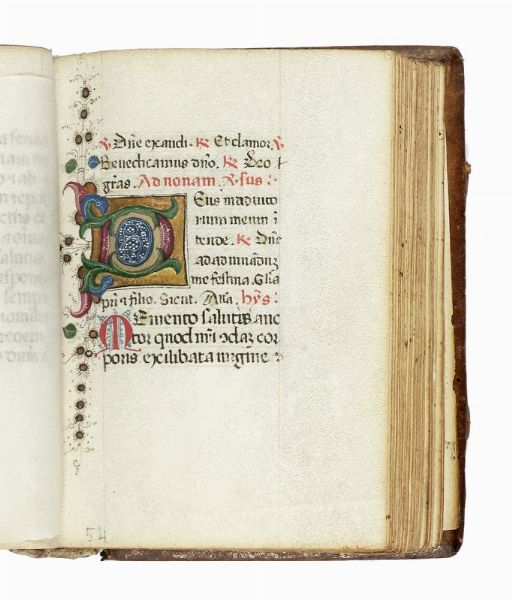 ℣ Dñe exaudi. ℟ Et clamor. ℣
Benedicamus dño. ℟ Deo
grãs. Ad nonam. ℣sus:
Deus in adiuto
rium meum ĩ
tende. ℟ Dñe
ad adiuuãdũ
me festina. Glia
pri ⁊ filio. Sicut. Ana. hỹs:
Memento salutis auc
tor quod nr̃i qdaz cor
poris ex ilibata uirgine
54